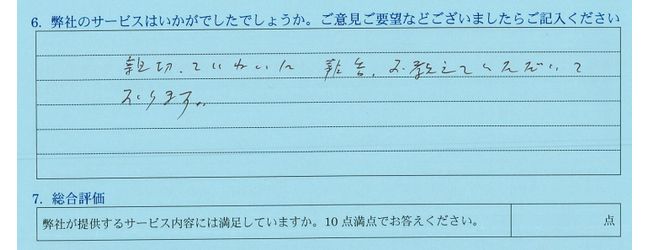 6. 弊社のサービスはいかがでしたでしょうか。ご意見ご要望などございましたらご記入ください
親切、ていねいに 報告、お教えていただいて
おります。
7. 総合評価
弊社が提供するサービス内容には満足していますか。10点満点でお答えください。 点